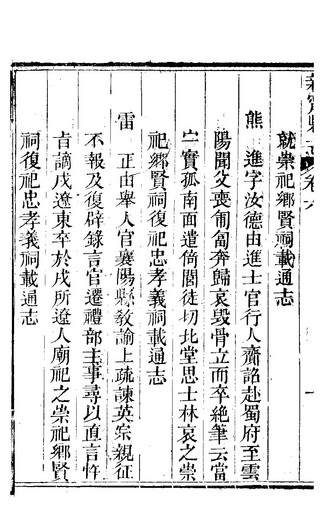 新寧縣志 卷六
就崇祀鄉賢祠載通志
熊 進字汝德由進士官行人齎詔赴蜀府至雲
陽聞父喪匍匐奔歸哀毀骨立而卒絶筆云當
宁實孤南面遣倚閭徒切北堂思士林哀之崇
祀鄉賢祠復祀忠孝義祠載通志
雷 正由舉人官襄陽縣教諭上疏諫英宗親征
不報及復辟錄言官遷禮部主事尋以直言忤
旨謫戍遼東卒於戍所遼人廟祀之崇祀鄉賢
祠復祀忠孝義祠載通志